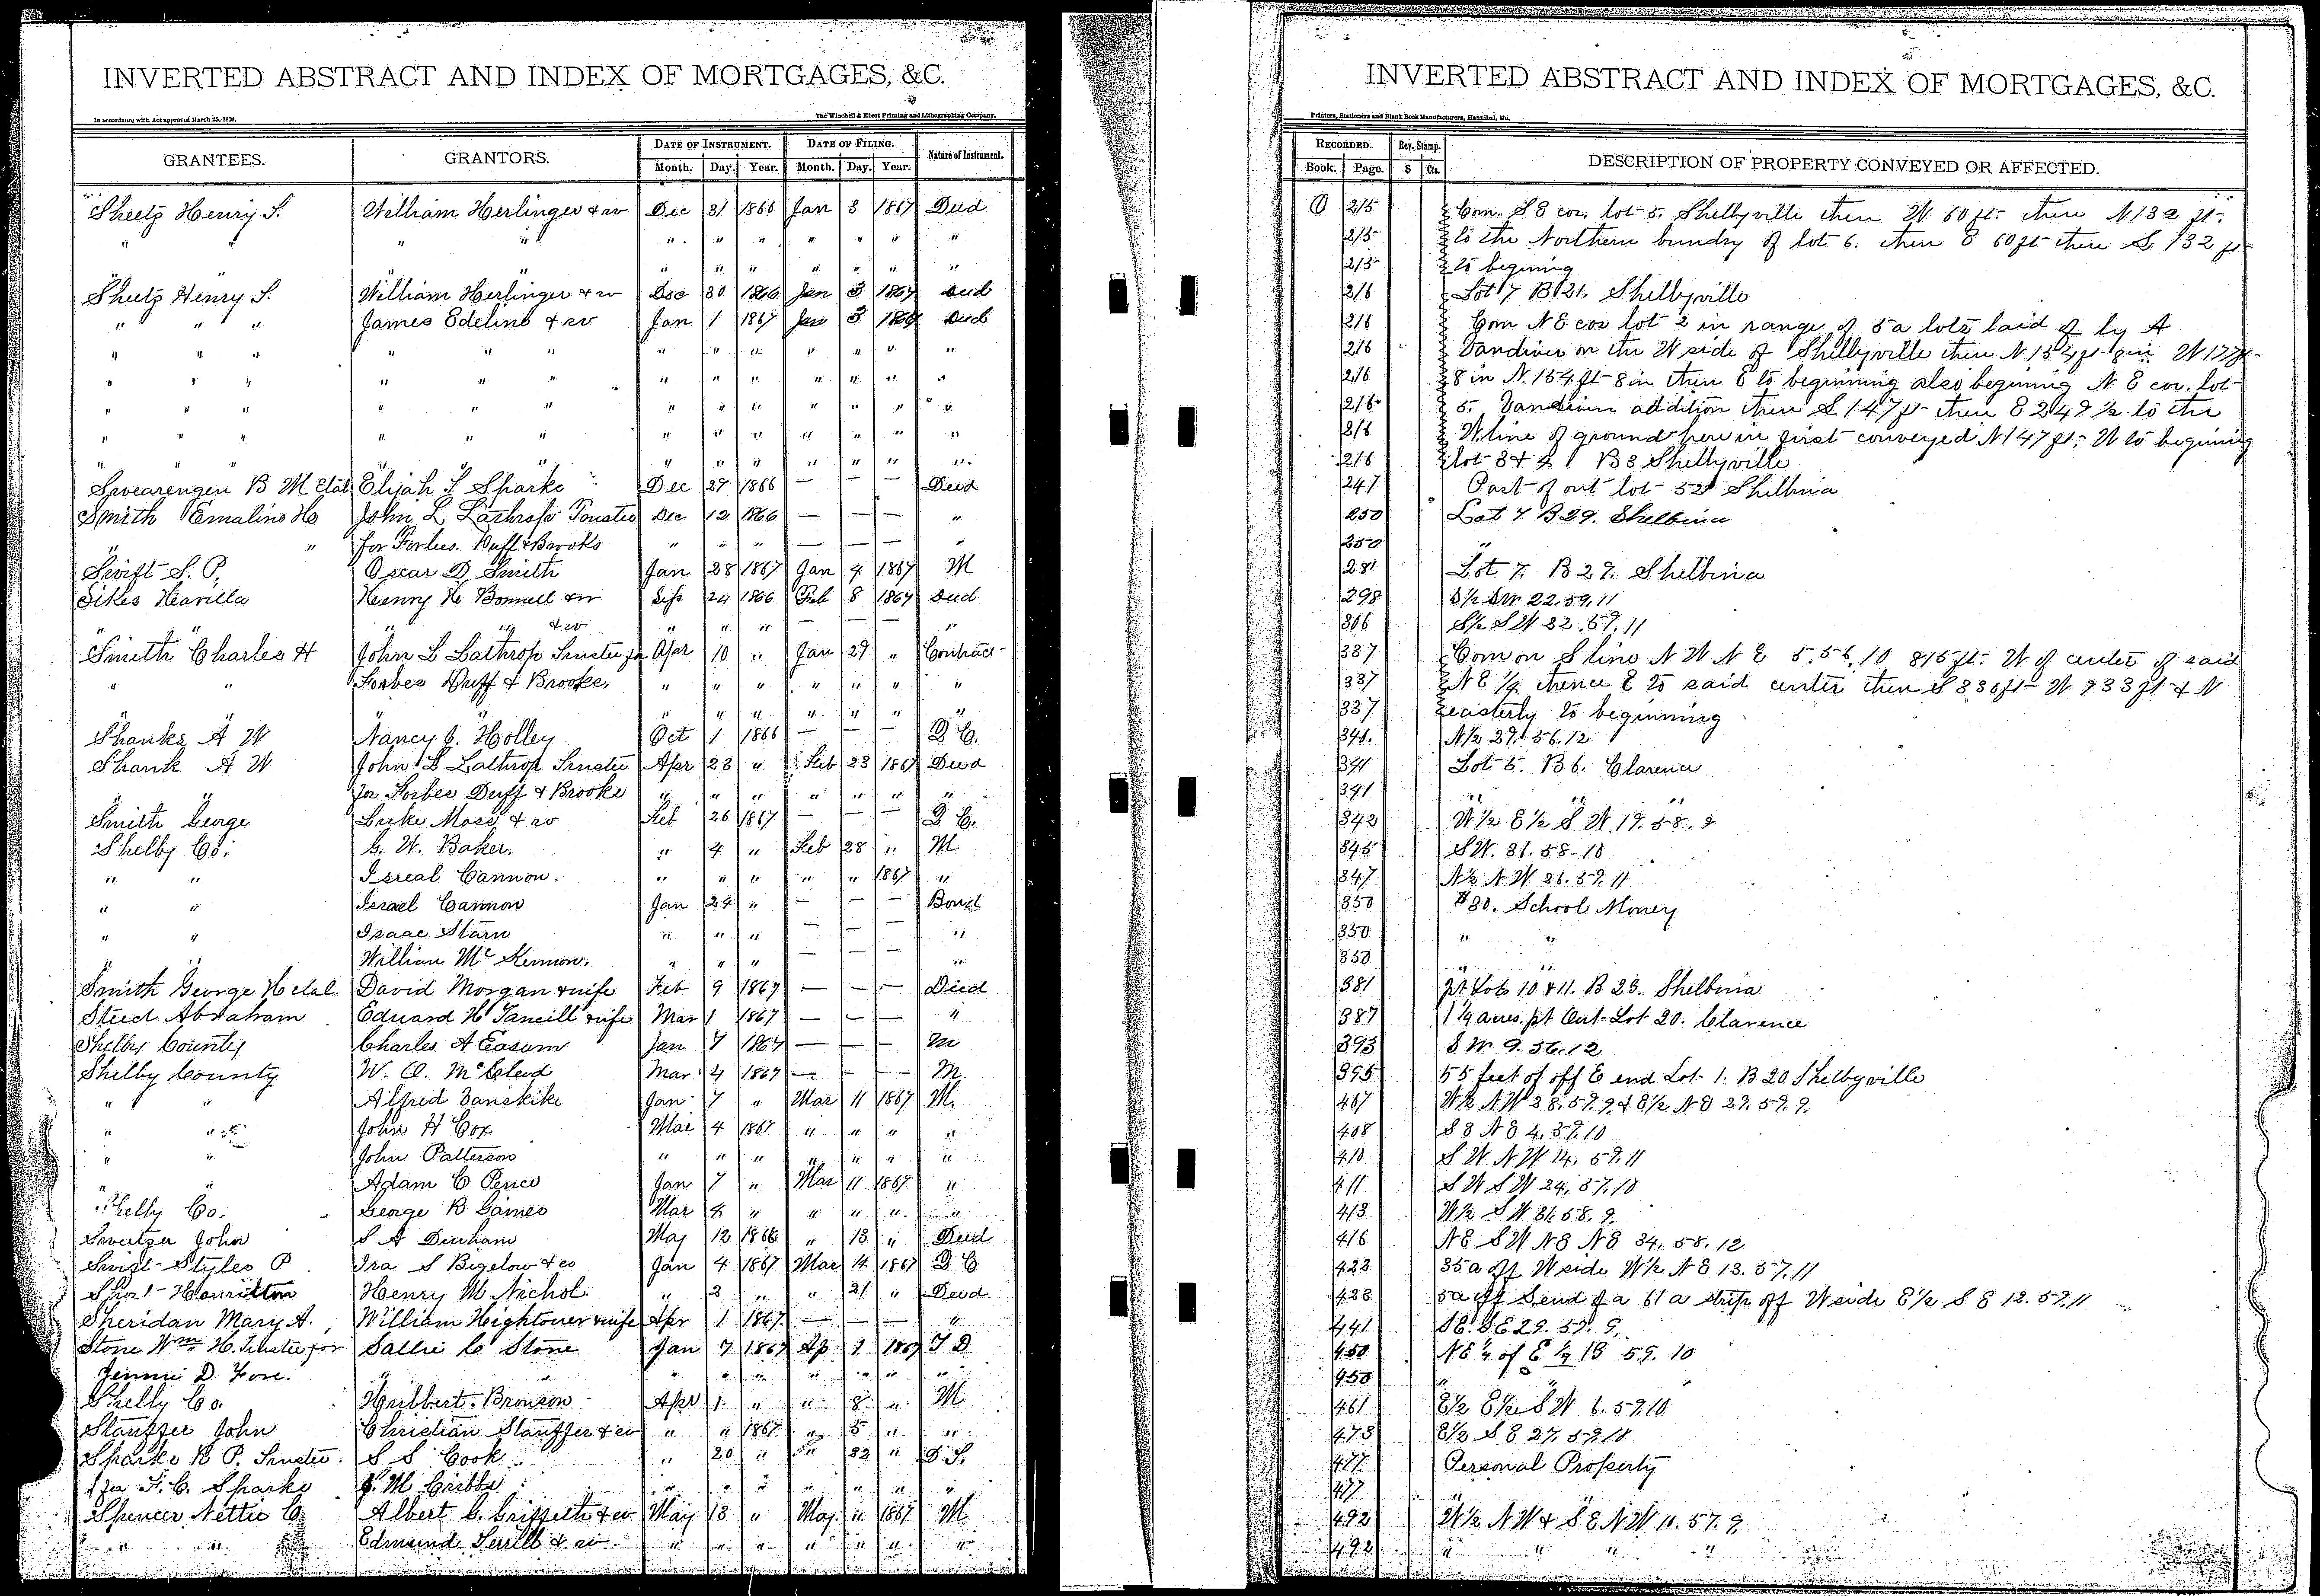 INVERTED ABSTRACT AND INDEX OF MORTGAGES, &C.
In accordance with Act approved March 25, 1870. The Winchell & Ebert Printing and Lithographing Company.
GRANTEES. GRANTORS. DATE OF INSTRUMENT. DATE OF FILING. Nature of Instrument.
Month. Day. Year. Month. Day. Year.
Sheetz Henry S. William Herlinger & w Dec 31 1866 Jan 3 1867 Deed
" " " " " " " " " " "
" " " " " " " " " "
Sheetz Henry S. William Herlinger & w Dec 30 1866 Jan 3 1867 Deed
" " " James Edelino & w Jan 1 1867 Jan 3 1867 Deed
" " " " " " " " " " " " "
" " " " " " " " " " " " "
" " " " " " " " " " " " "
" " " " " " " " " " " " "
" " " " " " " " " " " "
Swearengen B M etal Elijah L Sparks Dec 27 1866 — — — Deed
Smith Emaline H John L Lathrop Trustee Dec 12 1866 — — — "
" " for Forbes. Duff & Brooks " " " — — — "
Swift S. P. Oscar D. Smith Jan 28 1867 Jan 4 1867 M
Sikes Havilla Henry H Bonnell & w Sep 24 1866 Feb 8 1867 Deed
" " " " & w " " " — — — "
Smith Charles H John L Lathrop Trustee for Apr 10 " Jan 29 " Contract
" " Forbes Duff & Brooks. " " " " " " "
" " " " " " " " " " "
Shanks A W Nancy J. Holley Oct 1 1866 — — — Q C.
Shank A W John L Lathrop Trustee Apr 23 " Feb 23 1867 Deed
for Forbes Duff & Brooks " " " " " " "
Smith George Luke Moss & w Feb 26 1867 — — — Q C.
Shelby Co. G. W. Baker. " 4 " Feb 28 " M.
" " Isreal Cannon. " " " " " 1867 "
" " Israel Cannon Jan 24 " — — — Bond
" " Isaac Starn " " " — — — "
" " William McKinnon. " " " — — — "
Smith George H etal. David Morgan & wife Feb 9 1867 — — — Deed
Steed Abraham Edward H Tancill & wife Mar 1 1867 — — — "
Shelby County Charles A Easum Jan 7 1867 — — — M
Shelby County W. O. McCleod Mar 4 1867 — — — M
" " Alfred Vanskike Jan 7 " Mar 11 1867 M.
" " John H Cox Mar 4 1867 " " " "
" " John Patterson " " " " " " "
" Adam C Pence Jan 7 " Mar 11 1867 "
Shelby Co. George B Gaines Mar 4 " " " " "
Sweitzer John S A Durham May 12 1866 " 13 " Deed
Swift Styles P Ira S Bigelow & co Jan 4 1867 Mar 14 1867 Q C
Hamilton Henry M Nichol " 2 " " 21 " Deed
Sheridan Mary A. William Hightower & wife Apr 1 1867 — — — "
Stone Wm H. Trustee for Sallie C Stone Jan 7 1867 Ap 1 1867 T D
Jennie D Fore. " " " " " " " "
Shelby Co. Hulbert Bronson Apr 1 " " 8 " M
Stauffer John Christian Stauffer & w " " 1867 " 5 " "
Sparks B P. Trustee S S Cook " 20 " " 22 " D T.
for F. C. Sparks J. M Cribbs " " " " " " "
Spencer Nettie C Albert G. Griffeth & w May 13 " May " 1867 M
" " Edmund Terrill & w " " " " " " "
INVERTED ABSTRACT AND INDEX OF MORTGAGES, &C.
Printers, Stationers and Blank Book Manufacturers, Hannibal, Mo.
RECORDED. Rev. Stamp. DESCRIPTION OF PROPERTY CONVEYED OR AFFECTED.
Book. Page. $ Cts.
O 215 Com. S E cor. lot 5. Shelbyville then W 60 ft. then N 132 ft.
215 to the Northern bundry of lot 6. then E 60 ft then S 132 ft
215 to begining
216 Lot 7 B 21. Shelbyville
216 Com N E cor lot 2 in range of 5 a lots laid of by A
216 Vandiver on the W side of Shelbyville then N 154 ft 8 in W 177 ft
216 8 in N. 154 ft 8 in then E to beginning also begining N E cor. lot
216 5. Vandiver addition then S 147 ft then E 249 ½ to the
216 W line of ground here in first conveyed N 147 ft. W to begining
216 lot 3 & 4 B 3 Shelbyville
247 Part of out lot 52 Shelbina
250 Lot 7 B 29. Shelbina
250 "
281 Lot 7. B 27. Shelbina
298 S½ SW 22.59.11
306 S½ SW 22.59.11
337 Com on S line N W N E 5.56.10 815 ft. W of center of said
337 N E ¼ thence E to said center then S 830 ft W 833 ft & N
337 easterly to beginning
341. N½ 29. 56.12
391 Lot 5. B 6. Clarence
391 " " "
342 W½ E½ S W 19.58.9
345 SW. 31.58.10
347 N½ N W 26.59.11
350 $80. School Money
350 " "
350 " "
381 pt Lots 10 & 11. B 23. Shelbina
387 1¼ acres. pt Out-Lot 20. Clarence
393 S W 9.56.12
395 55 feet of off E end Lot 1. B 20 Shelbyville
407 W½ NW 28.59.9 & E½ N E 29.59.9.
408 S E N E 4.59.10
410 S W N W 14. 59.11
411 S W S W 24.57.10
413 W½ S W 31.58.9.
416 N E S W N E N E 34.58.12
422 35 a off W side W½ N E 13.57.11
438 5 a off S end of a 61 a strip off W side E½ S E 12.57.11
441 S E. S E 29. 59. 9.
450 N E ¼ of E ½ 18 59. 10
450 "
461 E½ E½ S W 6.59.10
473 E½ S E 27.59.10
477 Personal Property
477 "
492 W½ N W & S E N W 11.57.9
492 " " " "